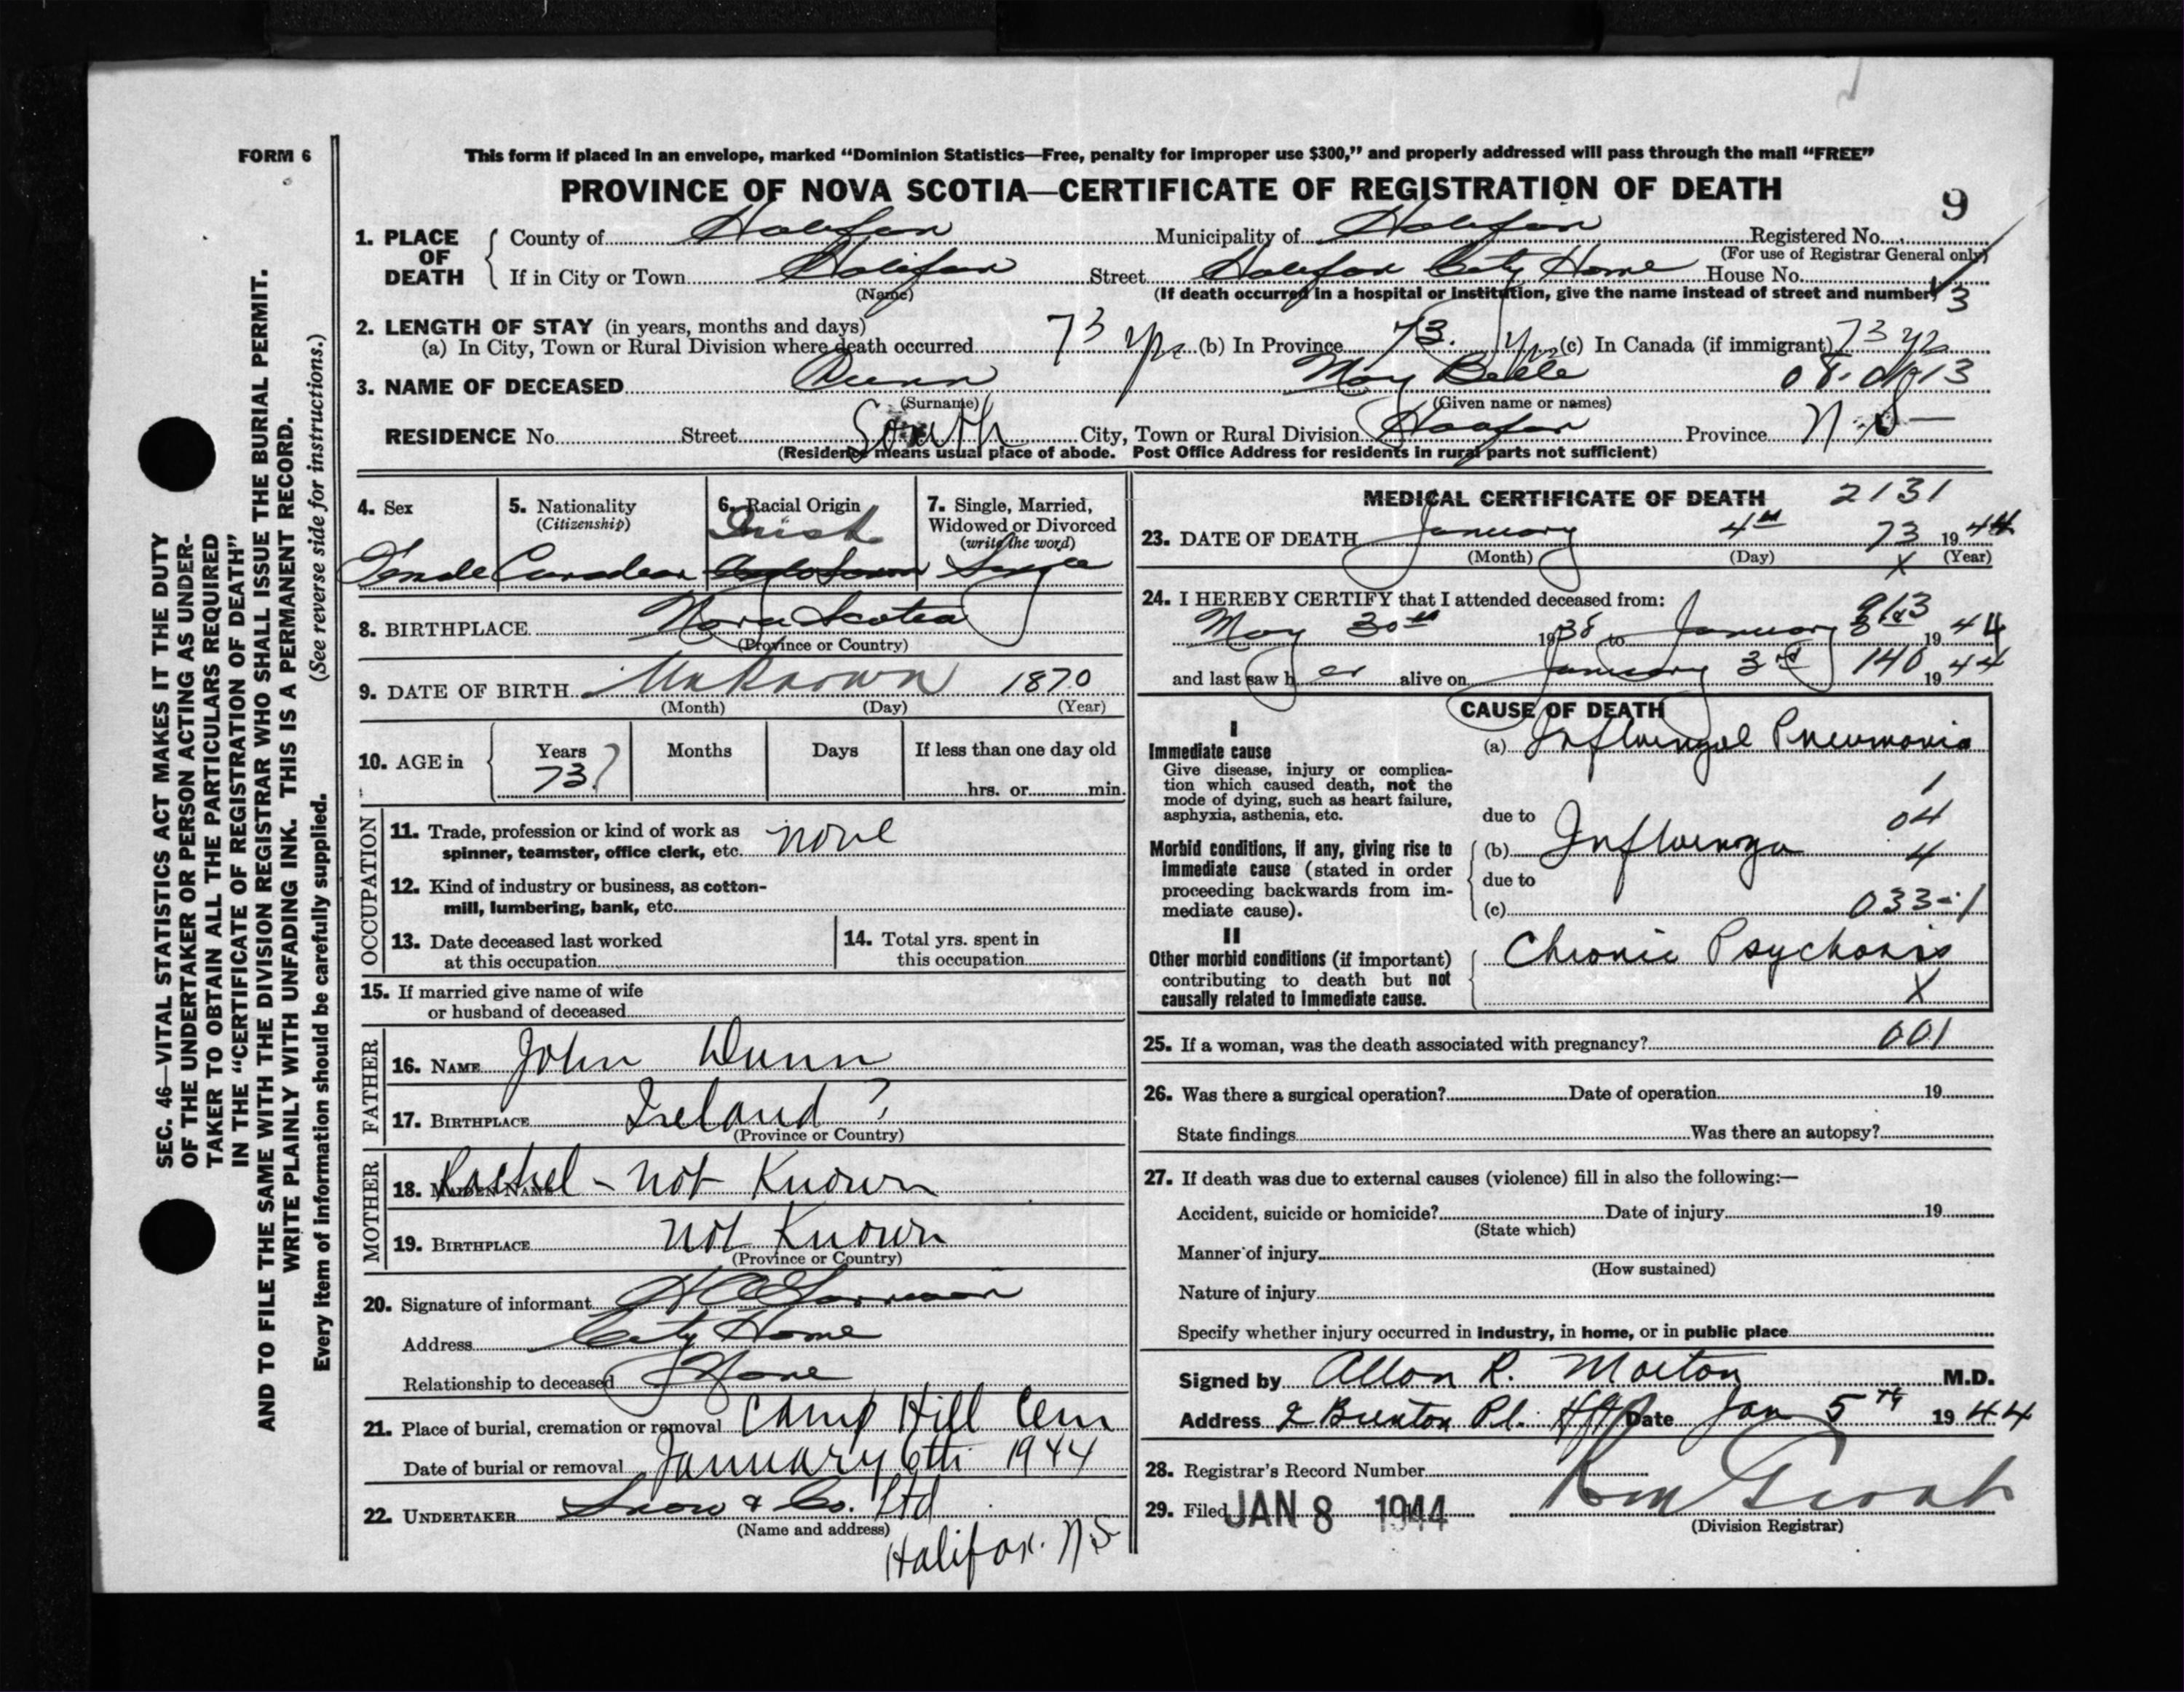 FORM 6
This form if placed in an envelope, marked “Dominion Statistics—Free, penalty for improper use $300,” and properly addressed will pass through the mail “FREE”
PROVINCE OF NOVA SCOTIA—CERTIFICATE OF REGISTRATION OF DEATH
9
1. PLACE OF DEATH
County of Halifax Municipality of Halifax Registered No.
(For use of Registrar General only)
If in City or Town Halifax Street Halifax City Home House No.
(Name) (If death occurred in a hospital or institution, give the name instead of street and number) 3
2. LENGTH OF STAY (in years, months and days)
(a) In City, Town or Rural Division where death occurred 73 yrs (b) In Province 73. yrs (c) In Canada (if immigrant) 73 yrs
3. NAME OF DECEASED Dunn May Belle
(Surname) (Given name or names)
RESIDENCE No. Street South City, Town or Rural Division Halifax Province N.S—
(Residence means usual place of abode. Post Office Address for residents in rural parts not sufficient)
4. Sex
Female
5. Nationality
(Citizenship)
Canadian
6. Racial Origin
Irish
Anglo Saxon
7. Single, Married,
Widowed or Divorced
(write the word)
Single
8. BIRTHPLACE Nova Scotia
(Province or Country)
9. DATE OF BIRTH Unknown 1870
(Month) (Day) (Year)
10. AGE in Years Months Days If less than one day old
73? hrs. or min.
OCCUPATION
11. Trade, profession or kind of work as
spinner, teamster, office clerk, etc. none
12. Kind of industry or business, as cotton-
mill, lumbering, bank, etc.
13. Date deceased last worked
at this occupation
14. Total yrs. spent in
this occupation
15. If married give name of wife
or husband of deceased
FATHER
16. NAME John Dunn
17. BIRTHPLACE Ireland ?
(Province or Country)
MOTHER
18. MAIDEN NAME Rachel - not Known
19. BIRTHPLACE not Known
(Province or Country)
20. Signature of informant
Address City Home
Relationship to deceased None
21. Place of burial, cremation or removal Camp Hill Cem
Date of burial or removal January 6th 1944
22. UNDERTAKER Snow & Co. Ltd
(Name and address)
Halifax. NS
MEDICAL CERTIFICATE OF DEATH 2131
23. DATE OF DEATH January 4th 73 1944
(Month) (Day) X (Year)
24. I HEREBY CERTIFY that I attended deceased from:
May 30th 1938 to January 3rd 1944
and last saw her alive on January 3rd 140 1944
CAUSE OF DEATH
I
Immediate cause
Give disease, injury or complica-
tion which caused death, not the
mode of dying, such as heart failure,
asphyxia, asthenia, etc.
(a) Influenzal Pneumonia
1
due to 04
Morbid conditions, if any, giving rise to
immediate cause (stated in order
proceeding backwards from im-
mediate cause).
(b) Influenza 4
due to
(c) 033-1
II
Other morbid conditions (if important)
contributing to death but not
causally related to immediate cause.
Chronic Psychosis
X
25. If a woman, was the death associated with pregnancy? 001
26. Was there a surgical operation? Date of operation 19
State findings Was there an autopsy?
27. If death was due to external causes (violence) fill in also the following:—
Accident, suicide or homicide? Date of injury 19
(State which)
Manner of injury
(How sustained)
Nature of injury
Specify whether injury occurred in industry, in home, or in public place
Signed by Allan R. Morton M.D.
Address 2 Brenton Pl. Hfx Date Jan 5th 1944
28. Registrar's Record Number
29. Filed JAN 8 1944
(Division Registrar)
SEC. 46—VITAL STATISTICS ACT MAKES IT THE DUTY
OF THE UNDERTAKER OR PERSON ACTING AS UNDER-
TAKER TO OBTAIN ALL THE PARTICULARS REQUIRED
IN THE “CERTIFICATE OF REGISTRATION OF DEATH”
AND TO FILE THE SAME WITH THE DIVISION REGISTRAR WHO SHALL ISSUE THE BURIAL PERMIT.
WRITE PLAINLY WITH UNFADING INK. THIS IS A PERMANENT RECORD.
Every item of information should be carefully supplied. (See reverse side for instructions.)